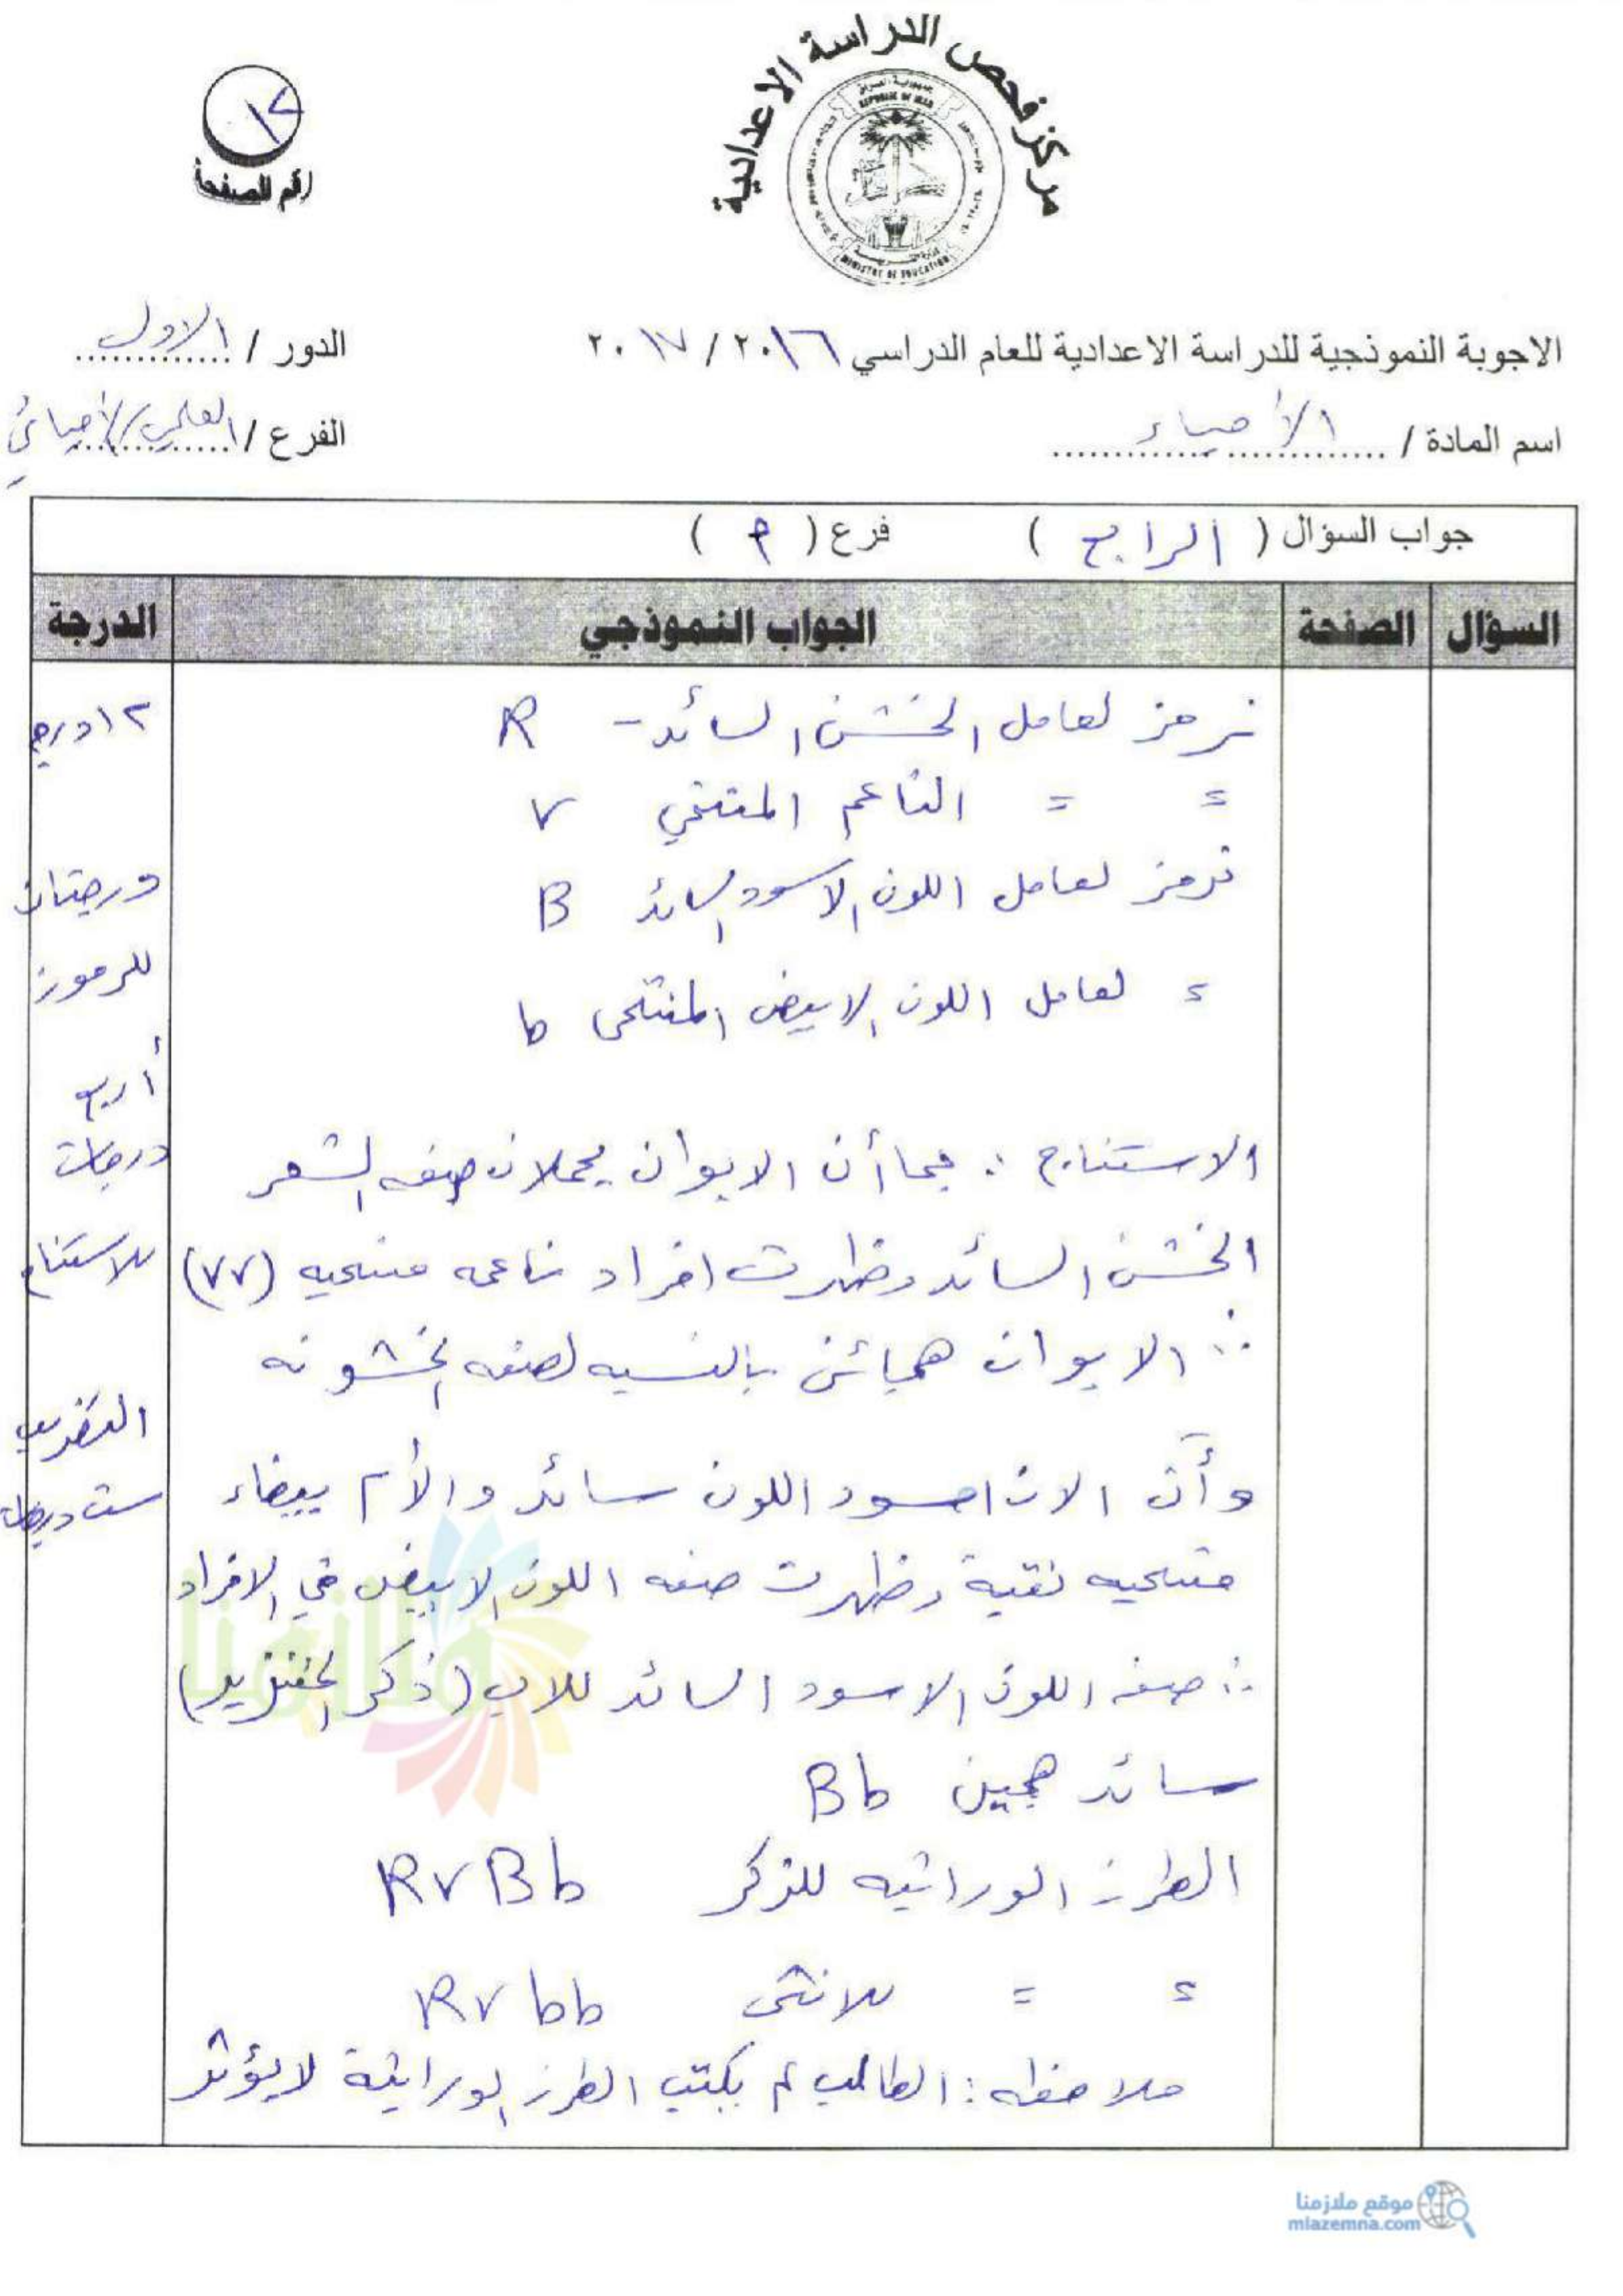 مركز فحص الدراسة الاعدادية
REPUBLIC OF IRAQ
MINISTRY OF EDUCATION
١٢
رقم الصفحة
الاجوبة النموذجية للدراسة الاعدادية للعام الدراسي ٢٠١٦ / ٢٠١٧
الدور / الاول
اسم المادة / الأحياء
الفرع / العلمي/الأحيائي
جواب السؤال ( الرابع ) فرع ( P )
السؤال
الصفحة
الجواب النموذجي
الدرجة
نرمز لعامل الخشن السائد - R
= = الناعم المتنحي r
نرمز لعامل اللون الاسود السائد B
= لعامل اللون الابيض المتنحي b
الاستنتاج : بما أن الابوان يحملان صفه الشعر
الخشن السائد وظهرت افراد ناعمه متنحيه (rr)
∴ الابوان هجائن بالنسبه لصفه الخشونه
وأن الاب اسود اللون سائد والأم بيضاء
متنحيه نقية وظهرت صفه اللون الابيض في الافراد
∴ صفه اللون الاسود السائد للاب (ذكر الخنزير)
سائد هجين Bb
الطرز الوراثيه للذكر RrBb
= = للانثى Rrbb
ملاحظه : الطالب لم يكتب الطرز الوراثية لا يؤثر
١٢ درجة
درجتان
للرموز
أربع
درجات
للاستنتاج
التضريب
ست درجات
ملازمنا
موقع ملازمنا
mlazemna.com